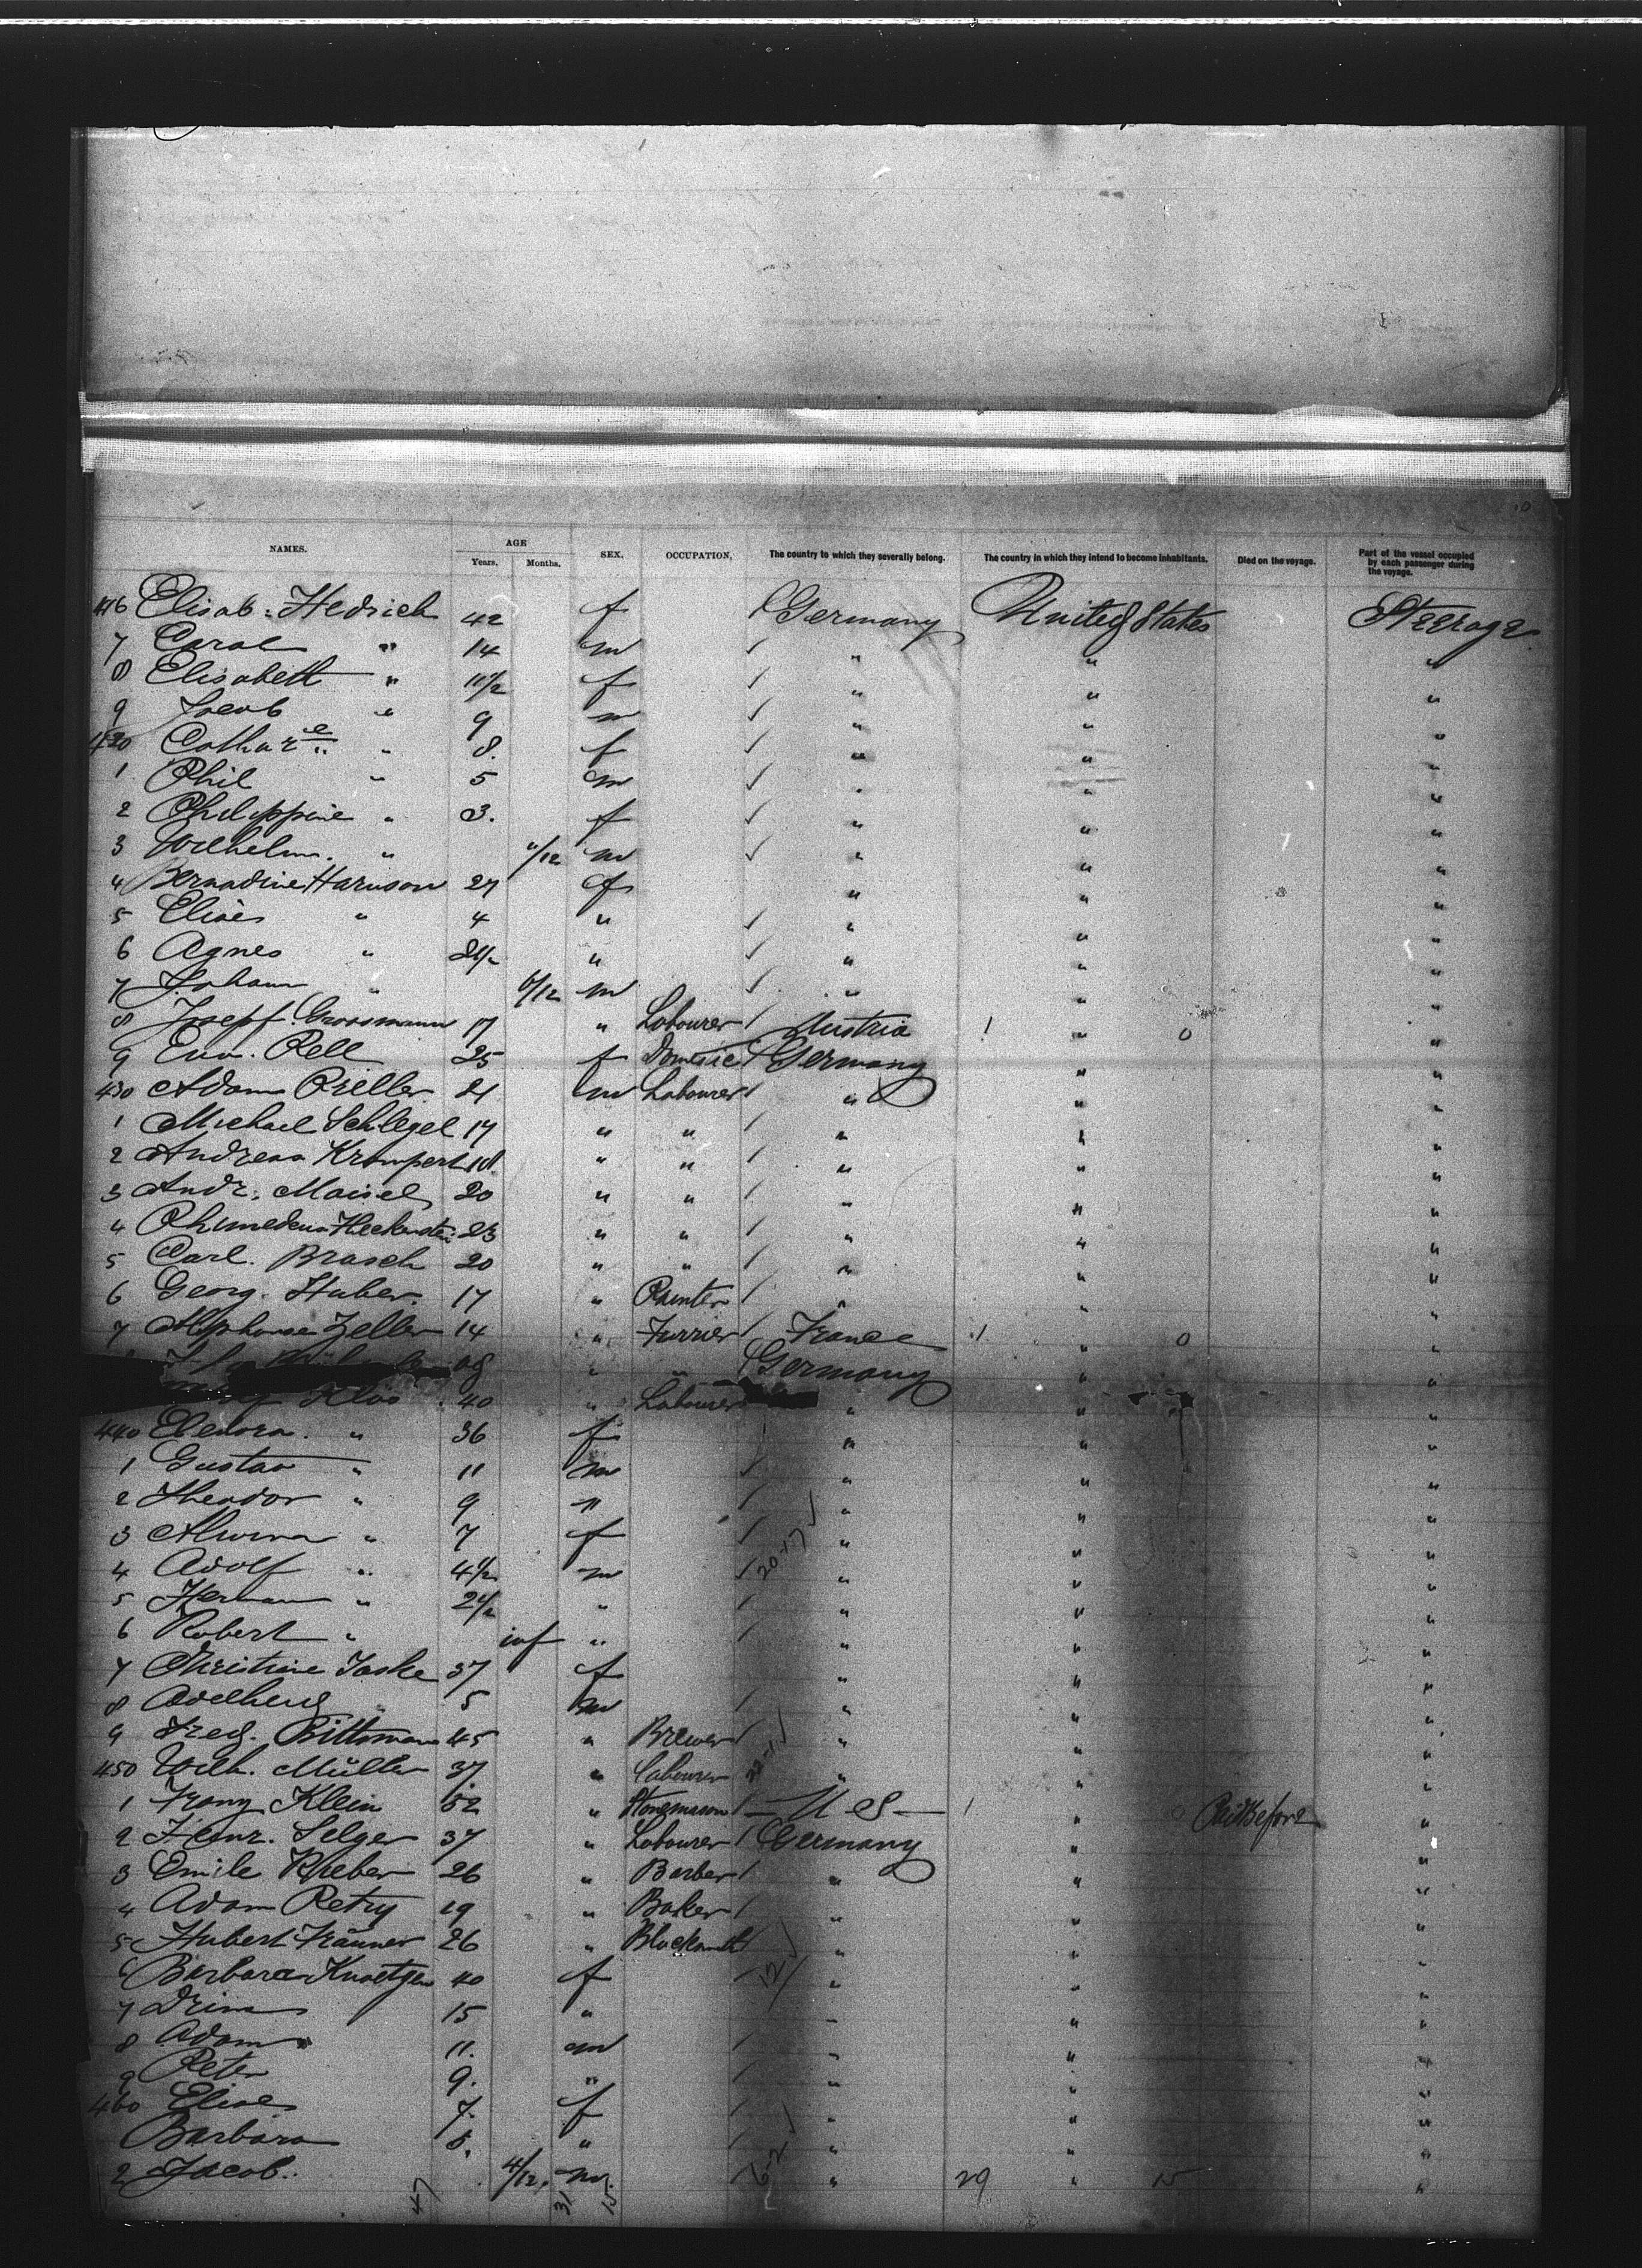 NAMES. AGE SEX. OCCUPATION. The country to which they severally belong. The country in which they intend to become inhabitants. Died on the voyage. Part of the vessel occupied by each passenger during the voyage.
Years. Months.
416 Elisab. Hedrich 42 f Germany United States Steerage
7 Carol " 14 m " " "
8 Elisabeth " 11 1/2 f " " "
9 Jacob " 9 m " " "
420 Cathar e " 8. f " " "
1 Phil " 5 m " " "
2 Philippine " 3. f " " "
3 Wilhelm. " 11/12 m " " "
4 Bernadine Harnson 27 f " " "
5 Elise " 4 " " " "
6 Agnes " 2 1/2 " " " "
7 Johann " 6/12 m " " "
8 Josepf. Grossmann 17 " Labourer Austria 1 " 0 "
9 Eva. Rell 25 f Domestic Germany " "
430 Adam Priller 21 m Labourer " " "
1 Michael Schlegel 17 " " " " "
2 Andreas Krompert 18 " " " " "
3 Andr. Maisel 20 " " " " "
4 Heckenstein 23 " " " " "
5 Carl. Brasch 20 " " " " "
6 Georg. Huber. 17 " Painter " " "
7 Alphonse Zeller 14 " Furrier France 1 " 0 "
28 " " Germany " "
Klos 40 " Labourer " " "
440 Elenora. " 36 f " " "
1 Gustav " 11 m " " "
2 Theodor " 9 " " " "
3 Alwina " 7 f " " "
4 Adolf " 4 1/2 m " " "
5 Herman " 2 1/2 " " " "
6 Robert " inf " " " "
7 Christine Jaske 37 f " " "
8 Adelheid " 5 m " " "
9 Fred. Bittman 45 " Brewer " " "
450 Wilh. Müller 37 " Labourer " " "
1 Franz Klein 52 " Stonemason U S 1 " 0 Paid Before "
2 Heinr. Selger 37 " Labourer Germany " "
3 Emile Rheber 26 " Barber " " "
4 Adam Petry 19 " Baker " " "
5 Hubert Fränner 26 " Blacksmith " " "
6 Barbara Knoetgen 40 f " " "
7 15 " " " "
8 Adam 11. m " " "
9 Peter 9. " " " "
460 Elise 7. f " " "
Barbara 5. " " " "
2 Jacob. 4/12 m " 29 " 15 "
47 31 15